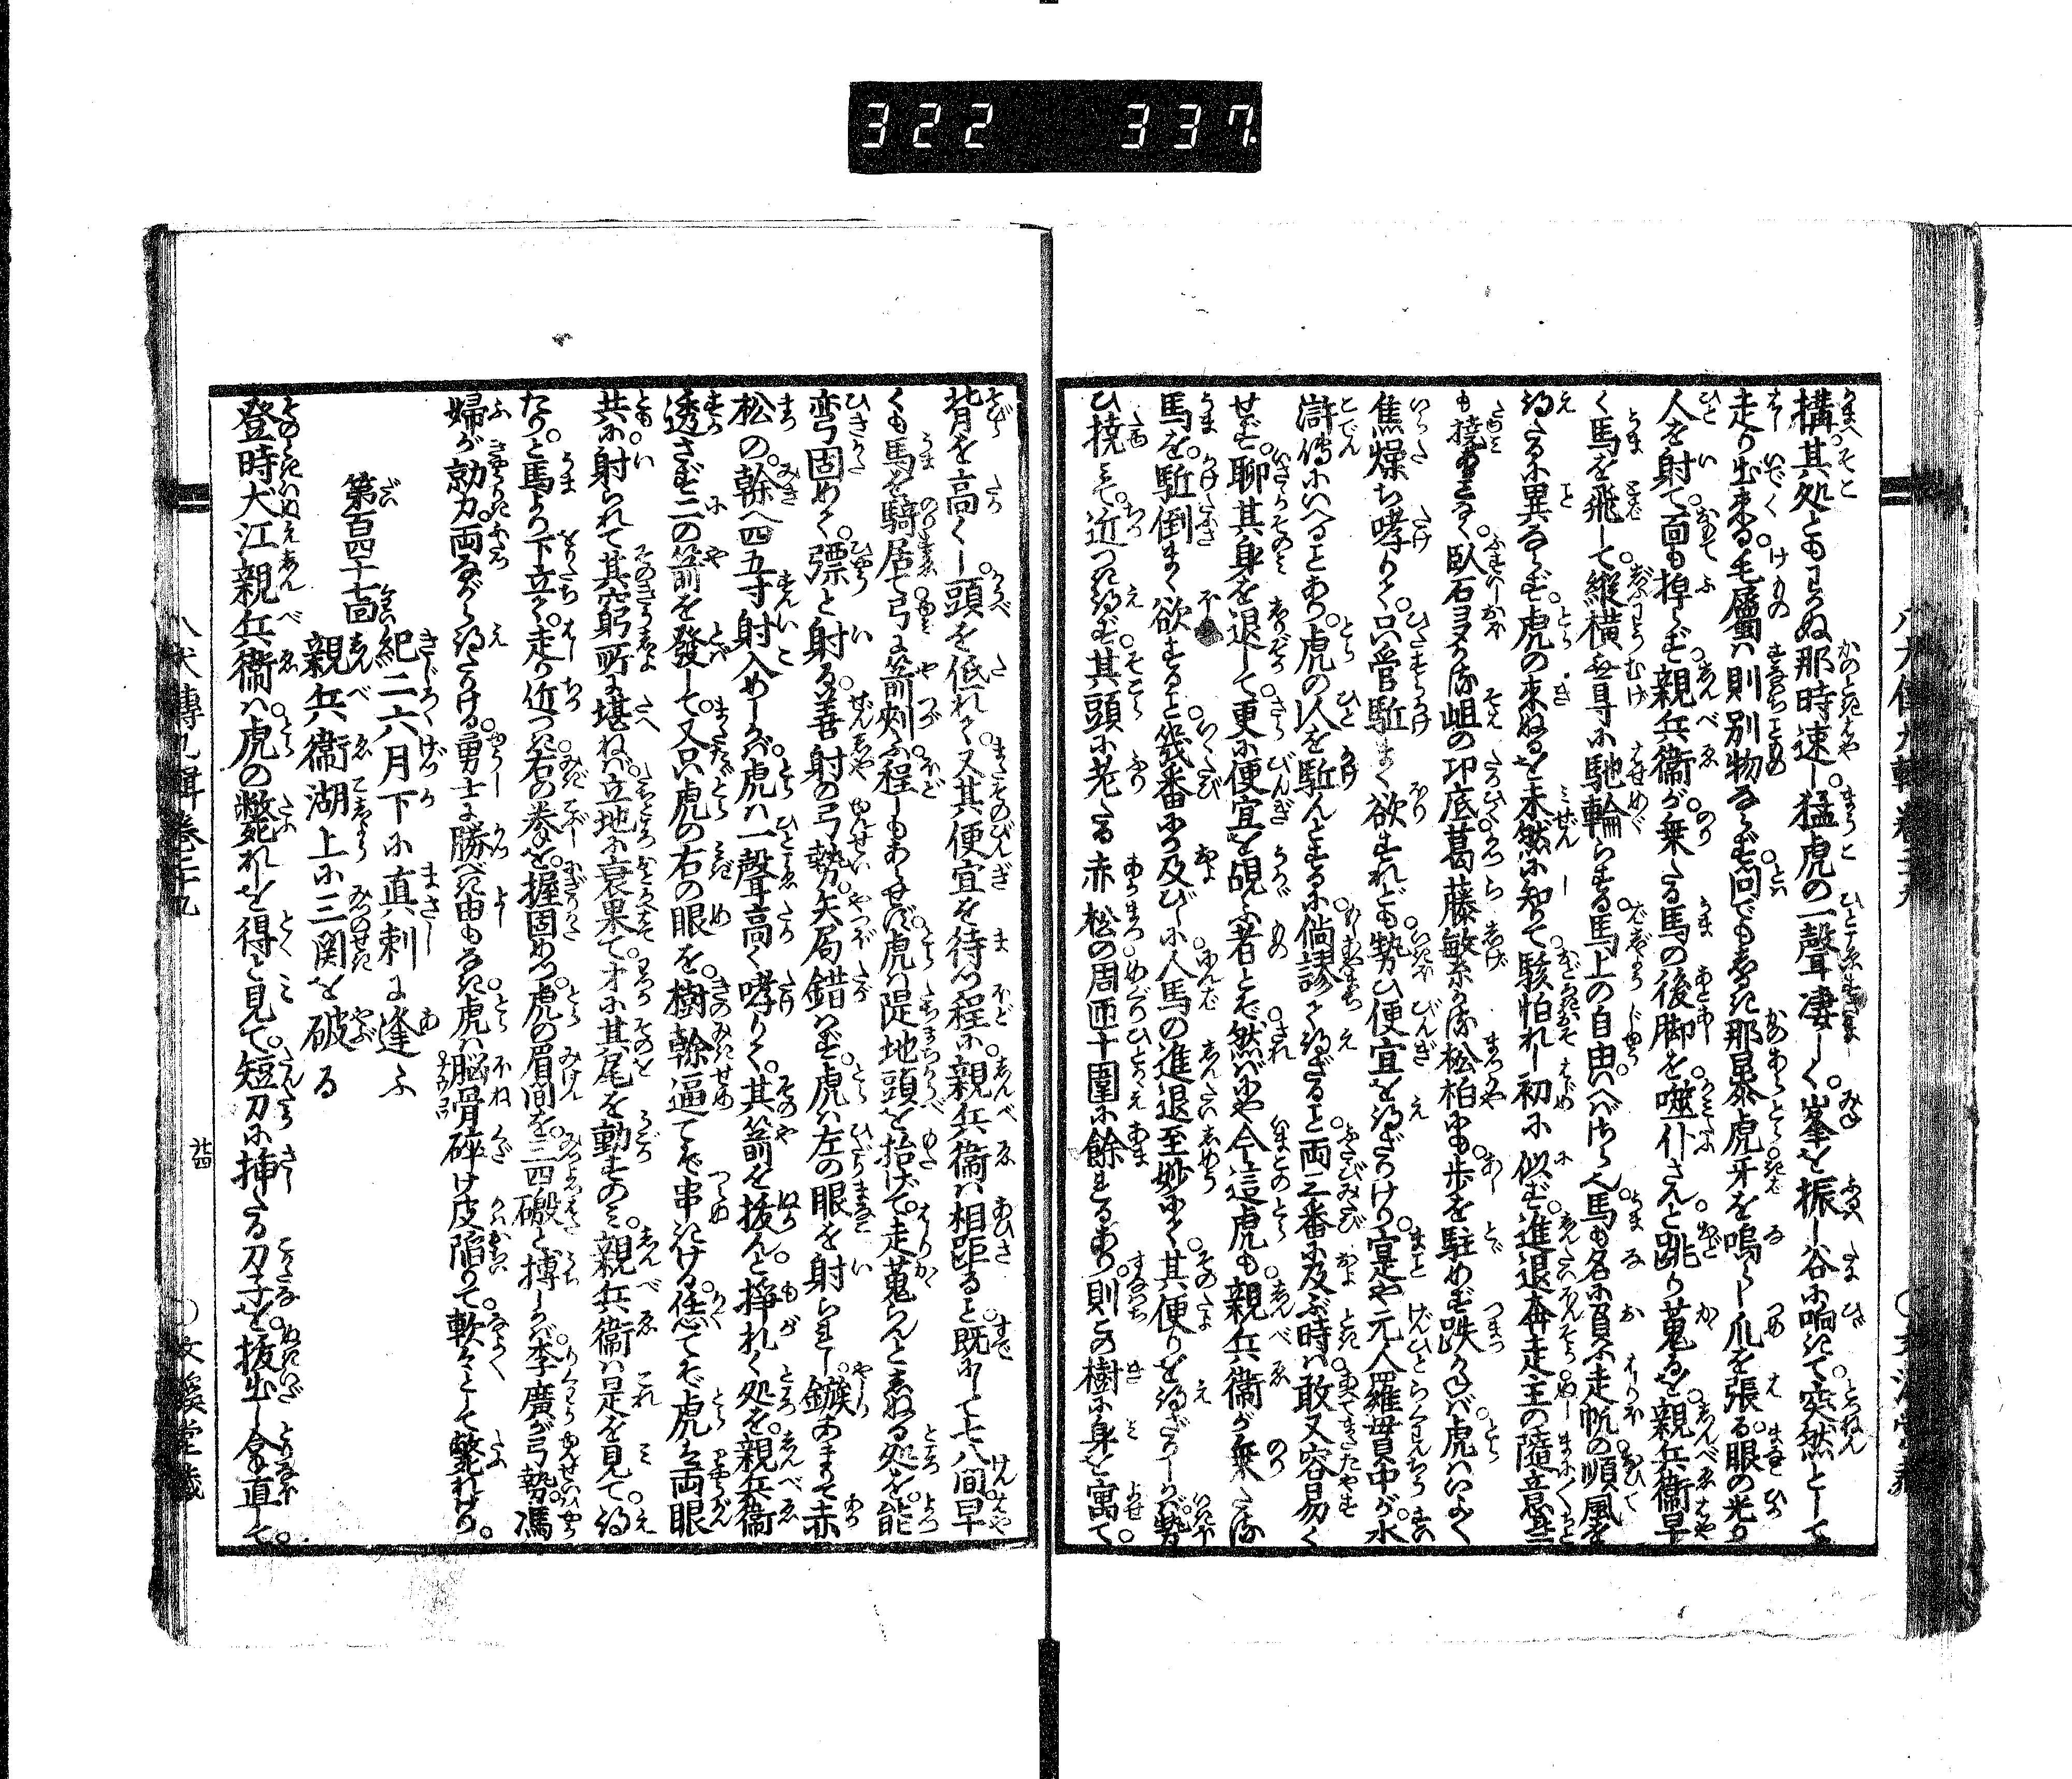 322 337
構其処ともわかぬ那時速し猛虎の一聲凄しく峯を振し谷に响きて突然として
走り出来る毛屬は則別物ならず問でもしるき那暴虎牙を鳴らし爪を張る眼の光り
人を射て面も掉らず親兵衞が乗たる馬の後脚を噬仆さんと跳り蒐るを親兵衞早
く馬を飛して縦横無㝵に馳輪らする馬上の自由いへばさら也馬も名に負ふ走帆の順風を
得たるに異ならず虎の来ぬるを未然に知りて駭怕れし初に似ず進退奔走主の隨意些
も撓むことなく臥石多かる岨の卭底葛藤敏系かる松柏にも歩を駐めず跌かねば虎はいよく
焦燥ち哮りて只管駈まく欲すれども勢ひ便宜を得ざりけり寔や元人羅貫中が水
滸傳にいへることあり虎の人を駈んとするに倘謬て得ざること両三番に及ぶ時は敢又容易く
せず聊其身を退して更に便宜を覘ふ者とぞ然ばにや今這虎も親兵衞が乗たる
馬を駈倒まく欲すること幾番にか及びしに人馬の進退至妙にて其便りを得ざりしかば勢
ひ撓みて近つき得ず其頭に老たる赤松の周匝十圍に餘れるあり則この樹に身を寓て
背を高くし頭を低れて又其便宜を待つ程に親兵衞は相距ること既にして七八間早
くも馬を騎居て弓に箭刺ふ程しもあらせず虎は隄地頭を抬げて走蒐らんとしぬる処を能
弯固めて彍と射る善射の弓勢矢局錯はず虎は左の眼を射られし鏃あまりて赤
松の幹へ四五寸射入めしかば虎は一聲高く哮りて其箭を抜んと掙れく処を親兵衞
透さず二の箭を發して又只虎の右の眼を樹幹逼てぞ串きける恁てぞ虎は両眼
共に射られて其窮所に堪ねば立地に衰果て才に其尾を動すのみ親兵衞は是を見て得
たりと馬より下立て走り近つき右の拳を握固めつ虎の眉間を三四磤と搏しかば李廣が弓勢馮
婦が勍力両ながら得たりける勇士に勝べき由もなき虎は脳骨碎け皮陥りて軟々として斃れけり
第百四十七回
紀二六月下に真刺に逢ふ
親兵衞湖上に三関を破る
登時犬江親兵衞は虎の斃れしを得と見て短刀に挿たる刀子を抜出し拿直して
八犬傳九輯巻二十九
廿四
文溪堂藏